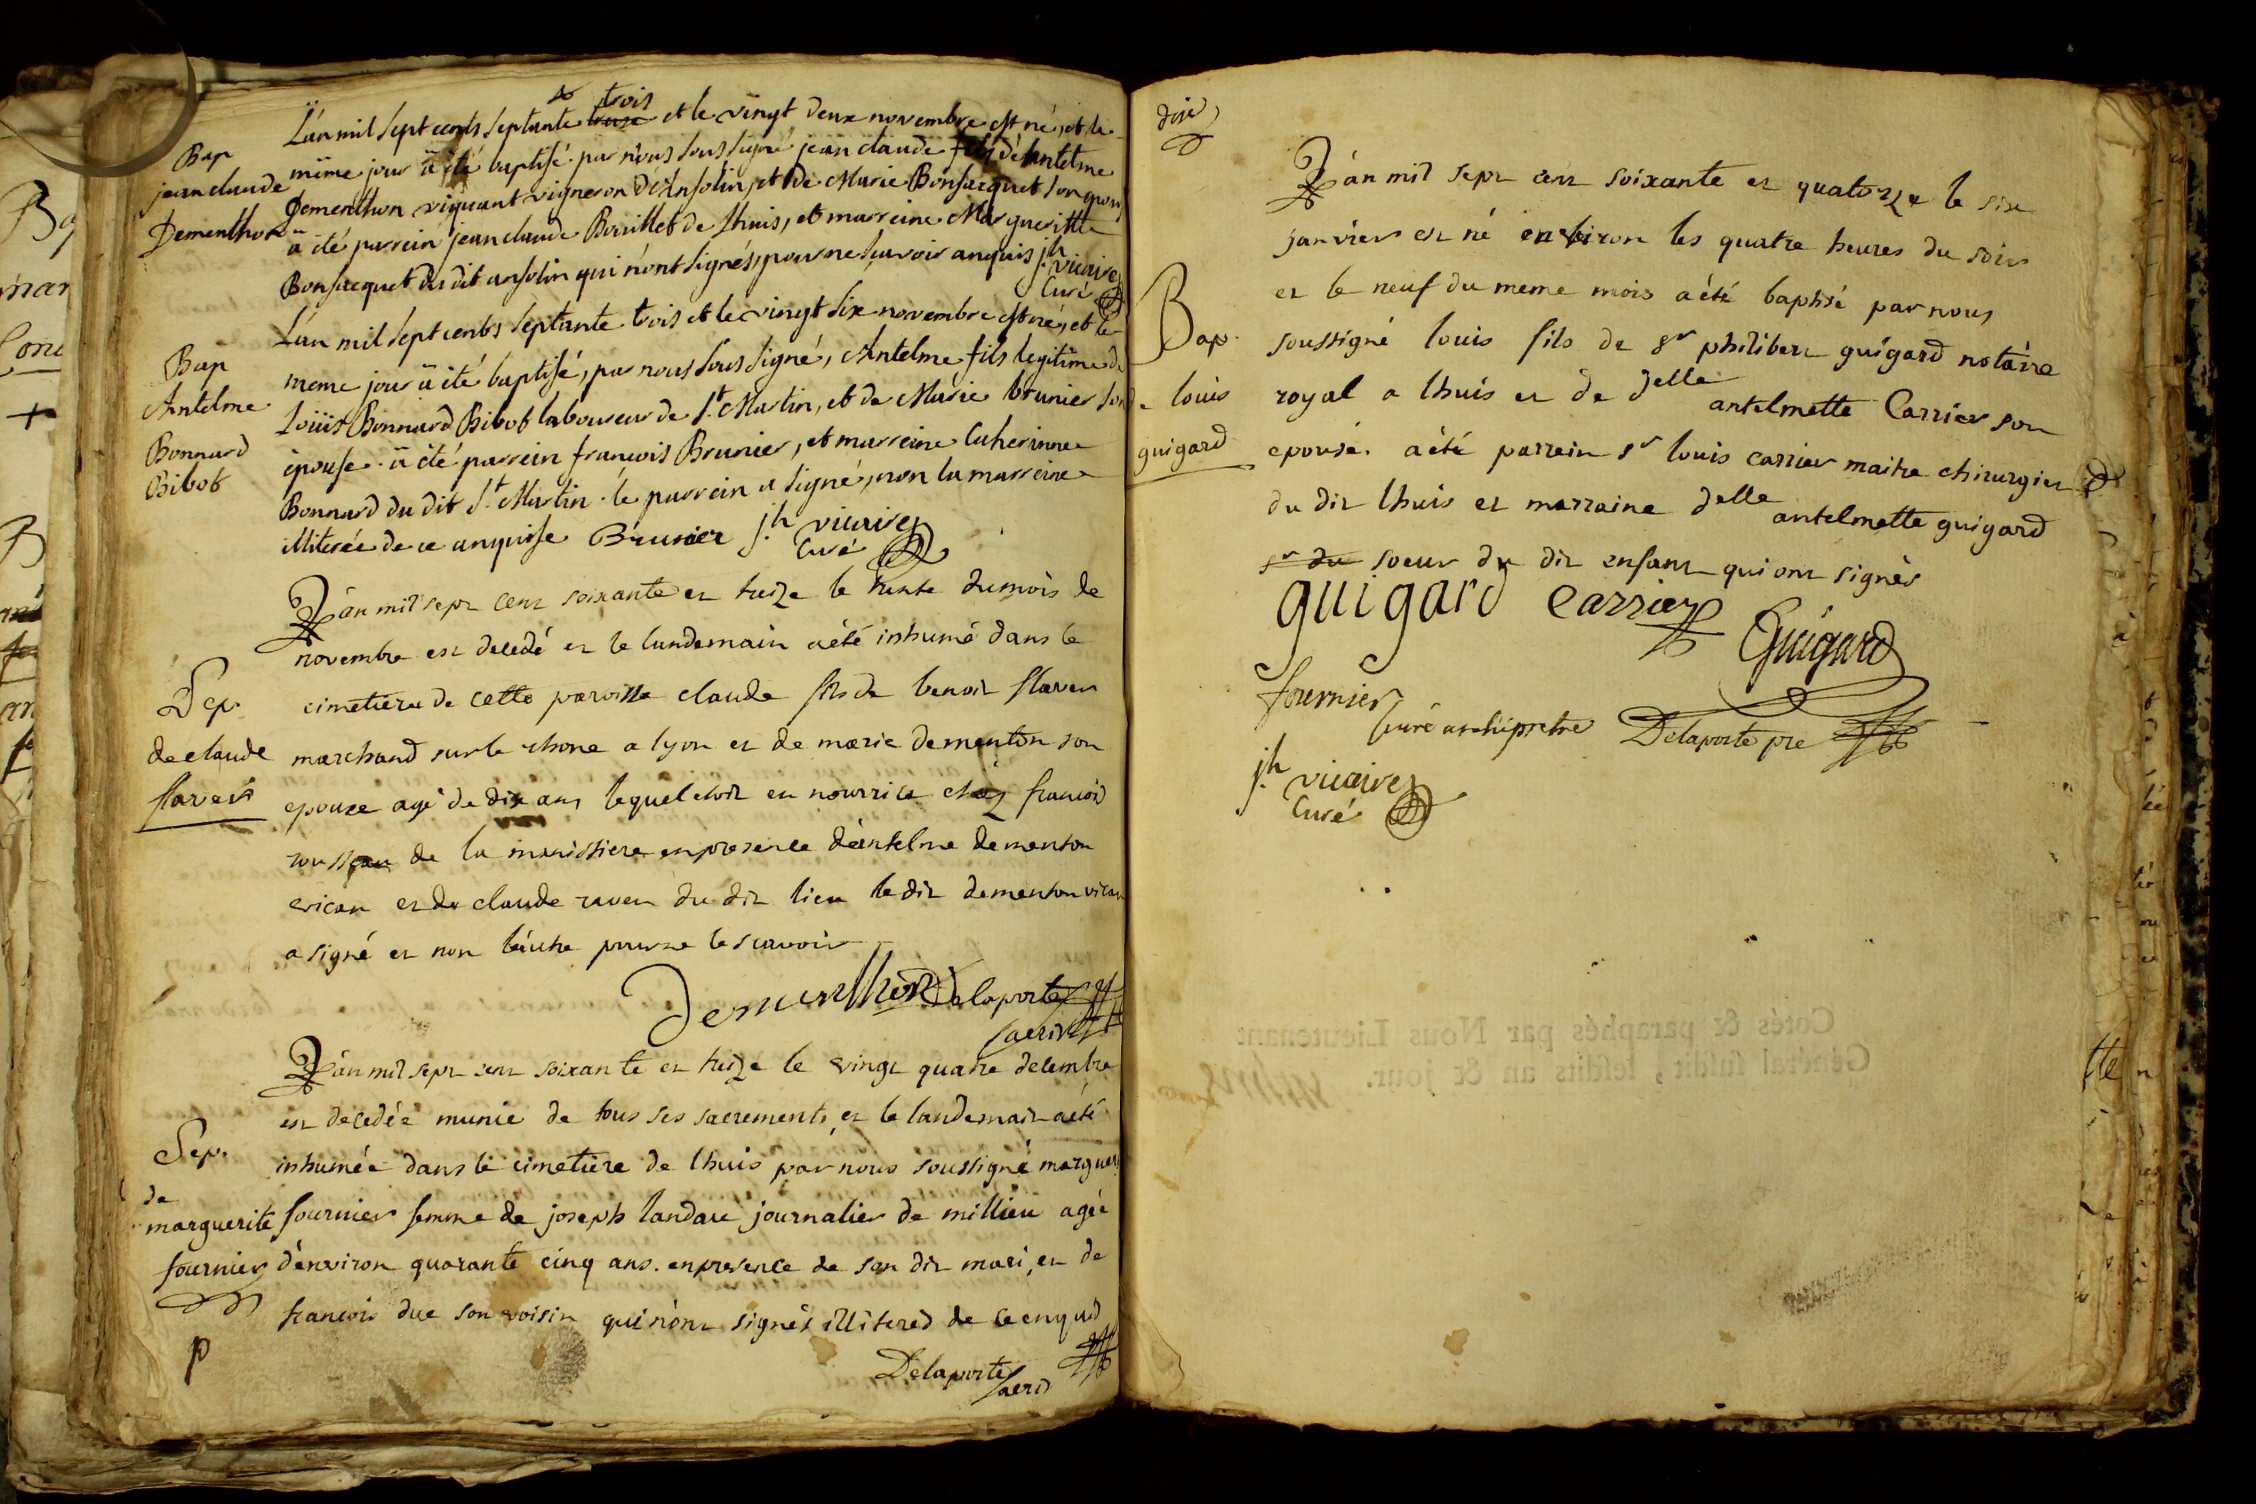 Bap
jean claude
Dementhon
L'an mil sept cents septante trois et le vingt deux novembre est né, et le
même jour a été baptisé par nous soussigné jean claude fils d'Antelme
Dementhon vigneron d'Ansolin, et de Marie Bonsacquet son
a été parrein jean claude Bouillet de Lhuis, et marreine Margueritte
Bonsacquet du dit ansolin qui n'ont signés, pour ne savoir anquis jh vicaire
Curé
Bap
Antelme
Bonnard
Bibot
L'an mil sept cents septante trois et le vingt six novembre est né, et le
meme jour a été baptisé, par nous soussigné, Antelme fils legitime de
Loüis Bonnard Bibot laboureur de St Martin, et de Marie brunier son
épouse. a été parrein francois Brunier, et marreine Catherinne
Bonnard du dit St Martin. le parrein a signé, non la marreine
illiterée de ce anquise Brunier jh vicaire
Curé
Sep.
de claude
flaven
L'an mil sept cent soixante et treize le trente du mois de
novembre est decedé et le lundemain aété inhumé dans le
cimetiere de cette paroisse claude fils de benoit flaven
marchand sur le rhone a lyon et de marie dementon son
epouze agé de dix ans lequel etoit en nourrice chez francois
de la manissiere en presence d'antelme dementon
et de claude raven du dit lieu le dit dementon
a signé et non l'autre pour ne le scavoir
Dementhon Delaporte
sacrid
Sep.
de
marguerite
fournier
L'an mil sept cent soixante et treize le vingt quatre decembre
est decedée munie de tous ses sacrements, et le landemain aété
inhumée dans le cimetiere de lhuis par nous soussigné
fournier femme de joseph landau journalier de millieu agée
d'environ quarante cinq ans. en presence de son dit mari, et de
francois duc son voisin qui n'ont signés illiterés de ce enquis
Delaporte
sacrid
p
dixe
Bap.
de louis
guigard
L'an mil sept cent soixante et quatorze le six
janvier est né environ les quatre heures du soir
et le neuf du meme mois aété baptisé par nous
soussigné louis fils de sr philibert guigard notaire
royal a lhuis et de delle antelmette Carrier son
epouse. aété parrein sr louis carrier maitre chirurgien
du dit lhuis et marraine delle antelmette guigard
sr du soeur du dit enfant qui ont signés
guigard Carrier
Guigard
fournier
Curé archipretre Delaporte pre
jh vicaire
Curé
Cotés & paraphés par Nous Lieutenant
Général susdit, lesdits an & jour.